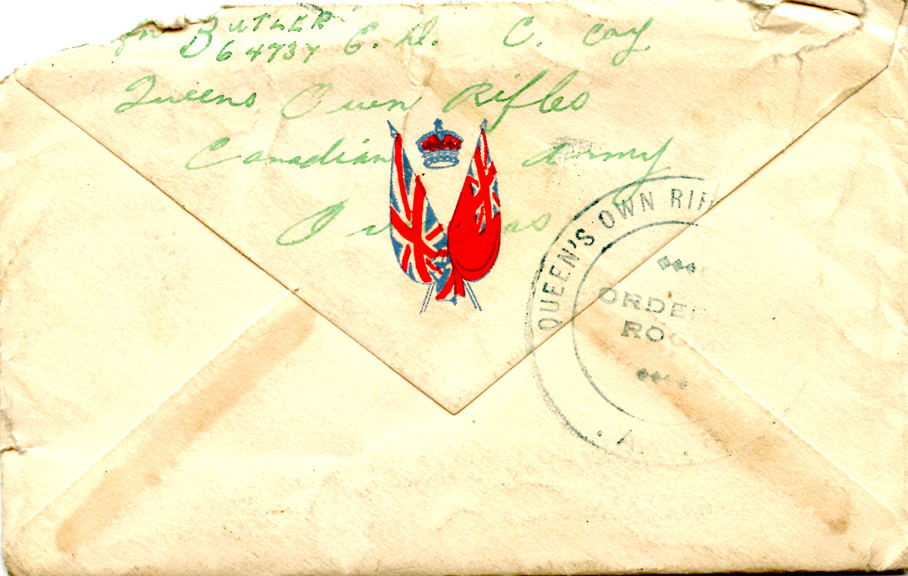 BUTLER
64737 G. D. C. Coy
Queens Own Rifles
Canadian Army
O as
QUEEN'S OWN RIF
ORDER
ROO
. A.